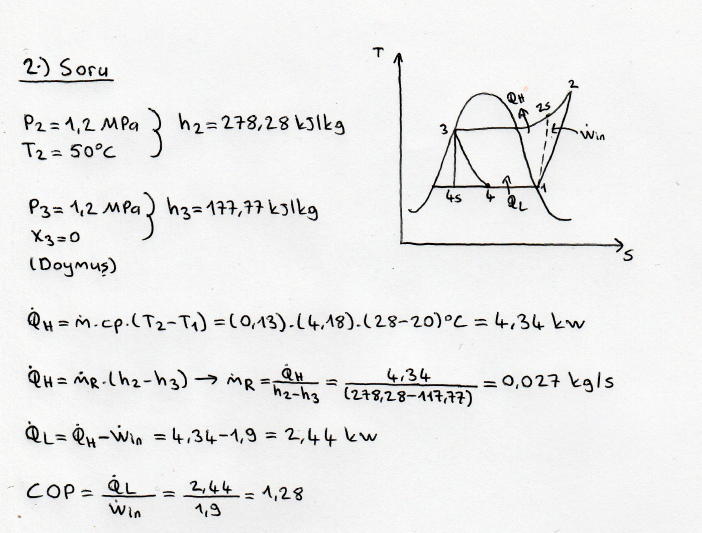 2.) Soru
P2 = 1,2 MPa
T2 = 50°C
} h2 = 278,28 kJ/kg
P3 = 1,2 MPa
X3 = 0
} h3 = 177,77 kJ/kg
(Doymuş)
T
Q̇H
2s
2
Ẇin
3
4s
4
Q̇L
1
S
Q̇H = ṁ.cp.(T2-T1) = (0,13).(4,18).(28-20)°C = 4,34 kW
Q̇H = ṁR.(h2-h3) → ṁR = Q̇H/(h2-h3) = 4,34/(278,28-117,77) = 0,027 kg/s
Q̇L = Q̇H - Ẇin = 4,34 - 1,9 = 2,44 kW
COP = Q̇L/Ẇin = 2,44/1,9 = 1,28